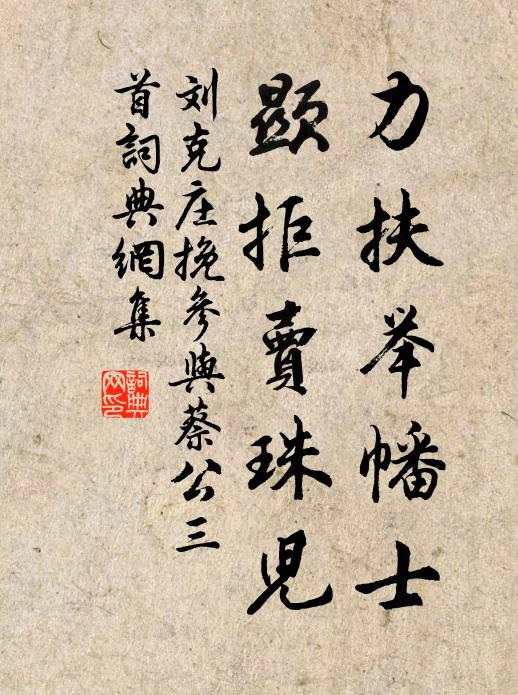 力扶举幡士
顕拒賣珠児
刘克庄挽參與蔡公三
首詞典網集
詞典网印